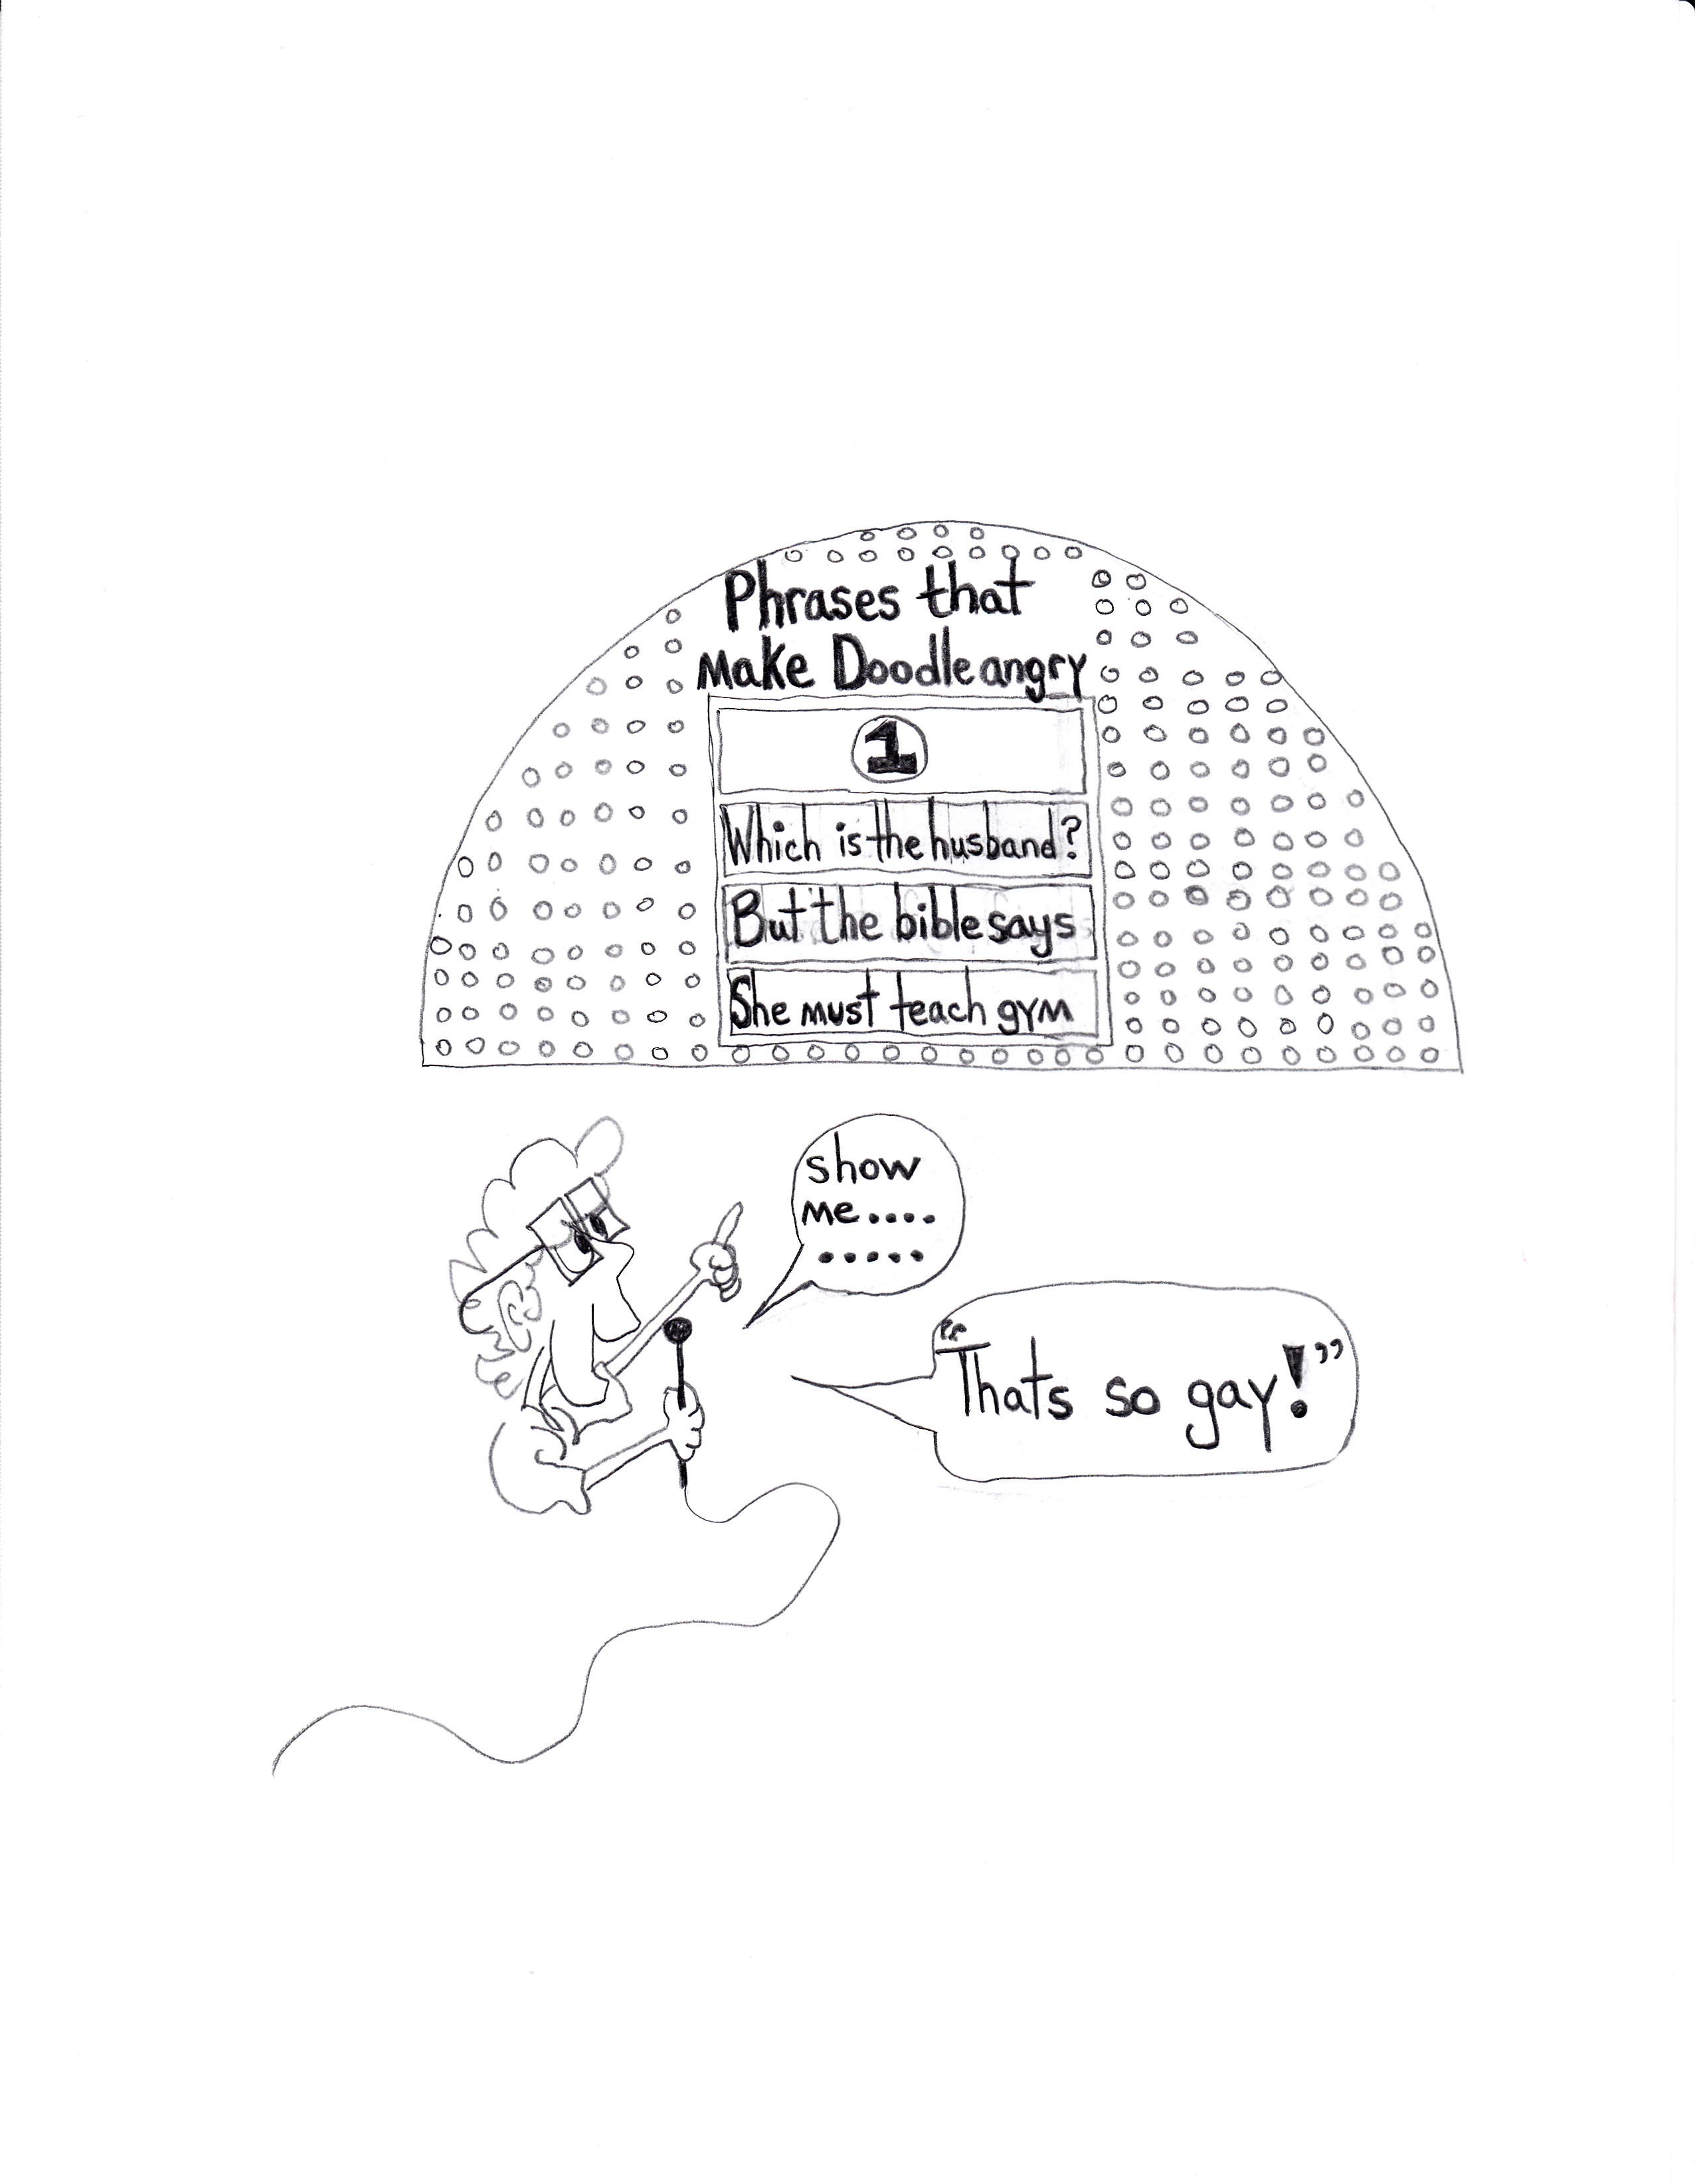 Phrases that
Make Doodle angry
1
Which is the husband?
But the bible says
She must teach gym
show
me....
.....
"Thats so gay!"